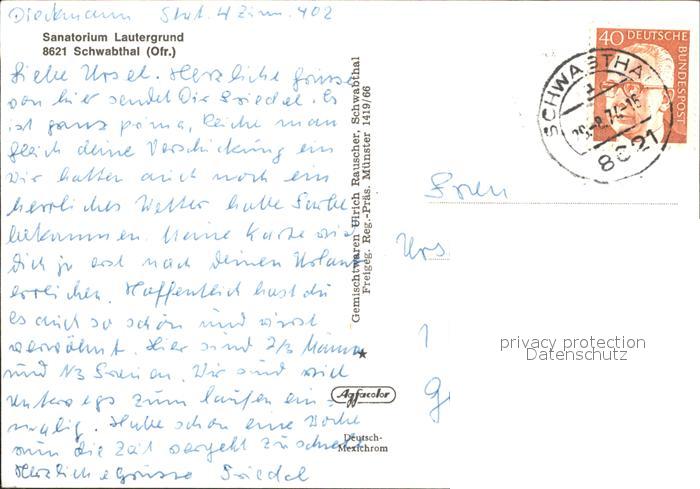 Dieckmann Stat. 4 Zimm. 402
Sanatorium Lautergrund
8621 Schwabthal (Ofr.)
Liebe Ursel. Herzliche Grüsse
von hier sendet Dir Friedel. Es
ist ganz prima,
gleich deine Verschickung ein
Wir hatten auch noch ein
herrliches Wetter habe Farbe
bekommen. Meine Karte wird
Dich ja erst nach deinem Urlaub
erreichen. Hoffentlich hast du
es auch so schön und wirst
verwöhnt. Hier sind 2/3 Männer
und 1/3 Frauen. Wir sind viel
unterwegs zum laufen ein-
malig. Habe schon eine Woche
rum die Zeit vergeht zu schnell
Herzliche Grüsse Friedel
Gemischtwaren Ulrich Rauscher, Schwabthal
Freigeg. Reg.-Präs. Münster 1419/66
Agfacolor
Deutsch-
Mexichrom
40 DEUTSCHE
BUNDESPOST
SCHWABTHAL
8621
Frau
Urs
1
G
privacy protection
Datenschutz